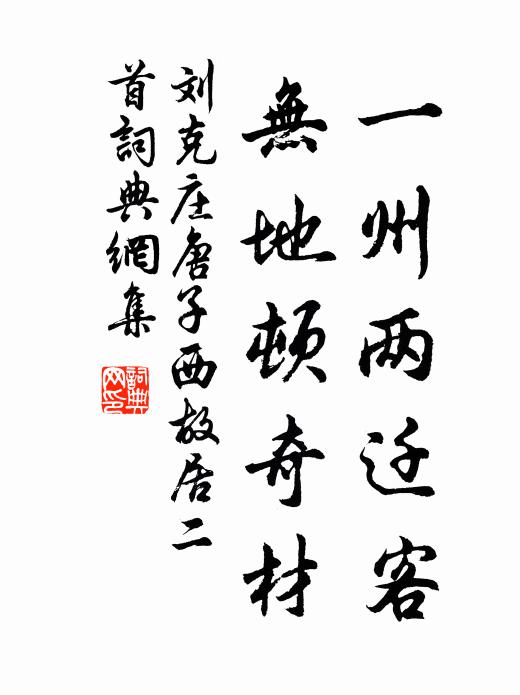 一州两迁客
無地頓奇材
刘克庄唐子西故居二
首詞典網集
詞典網印